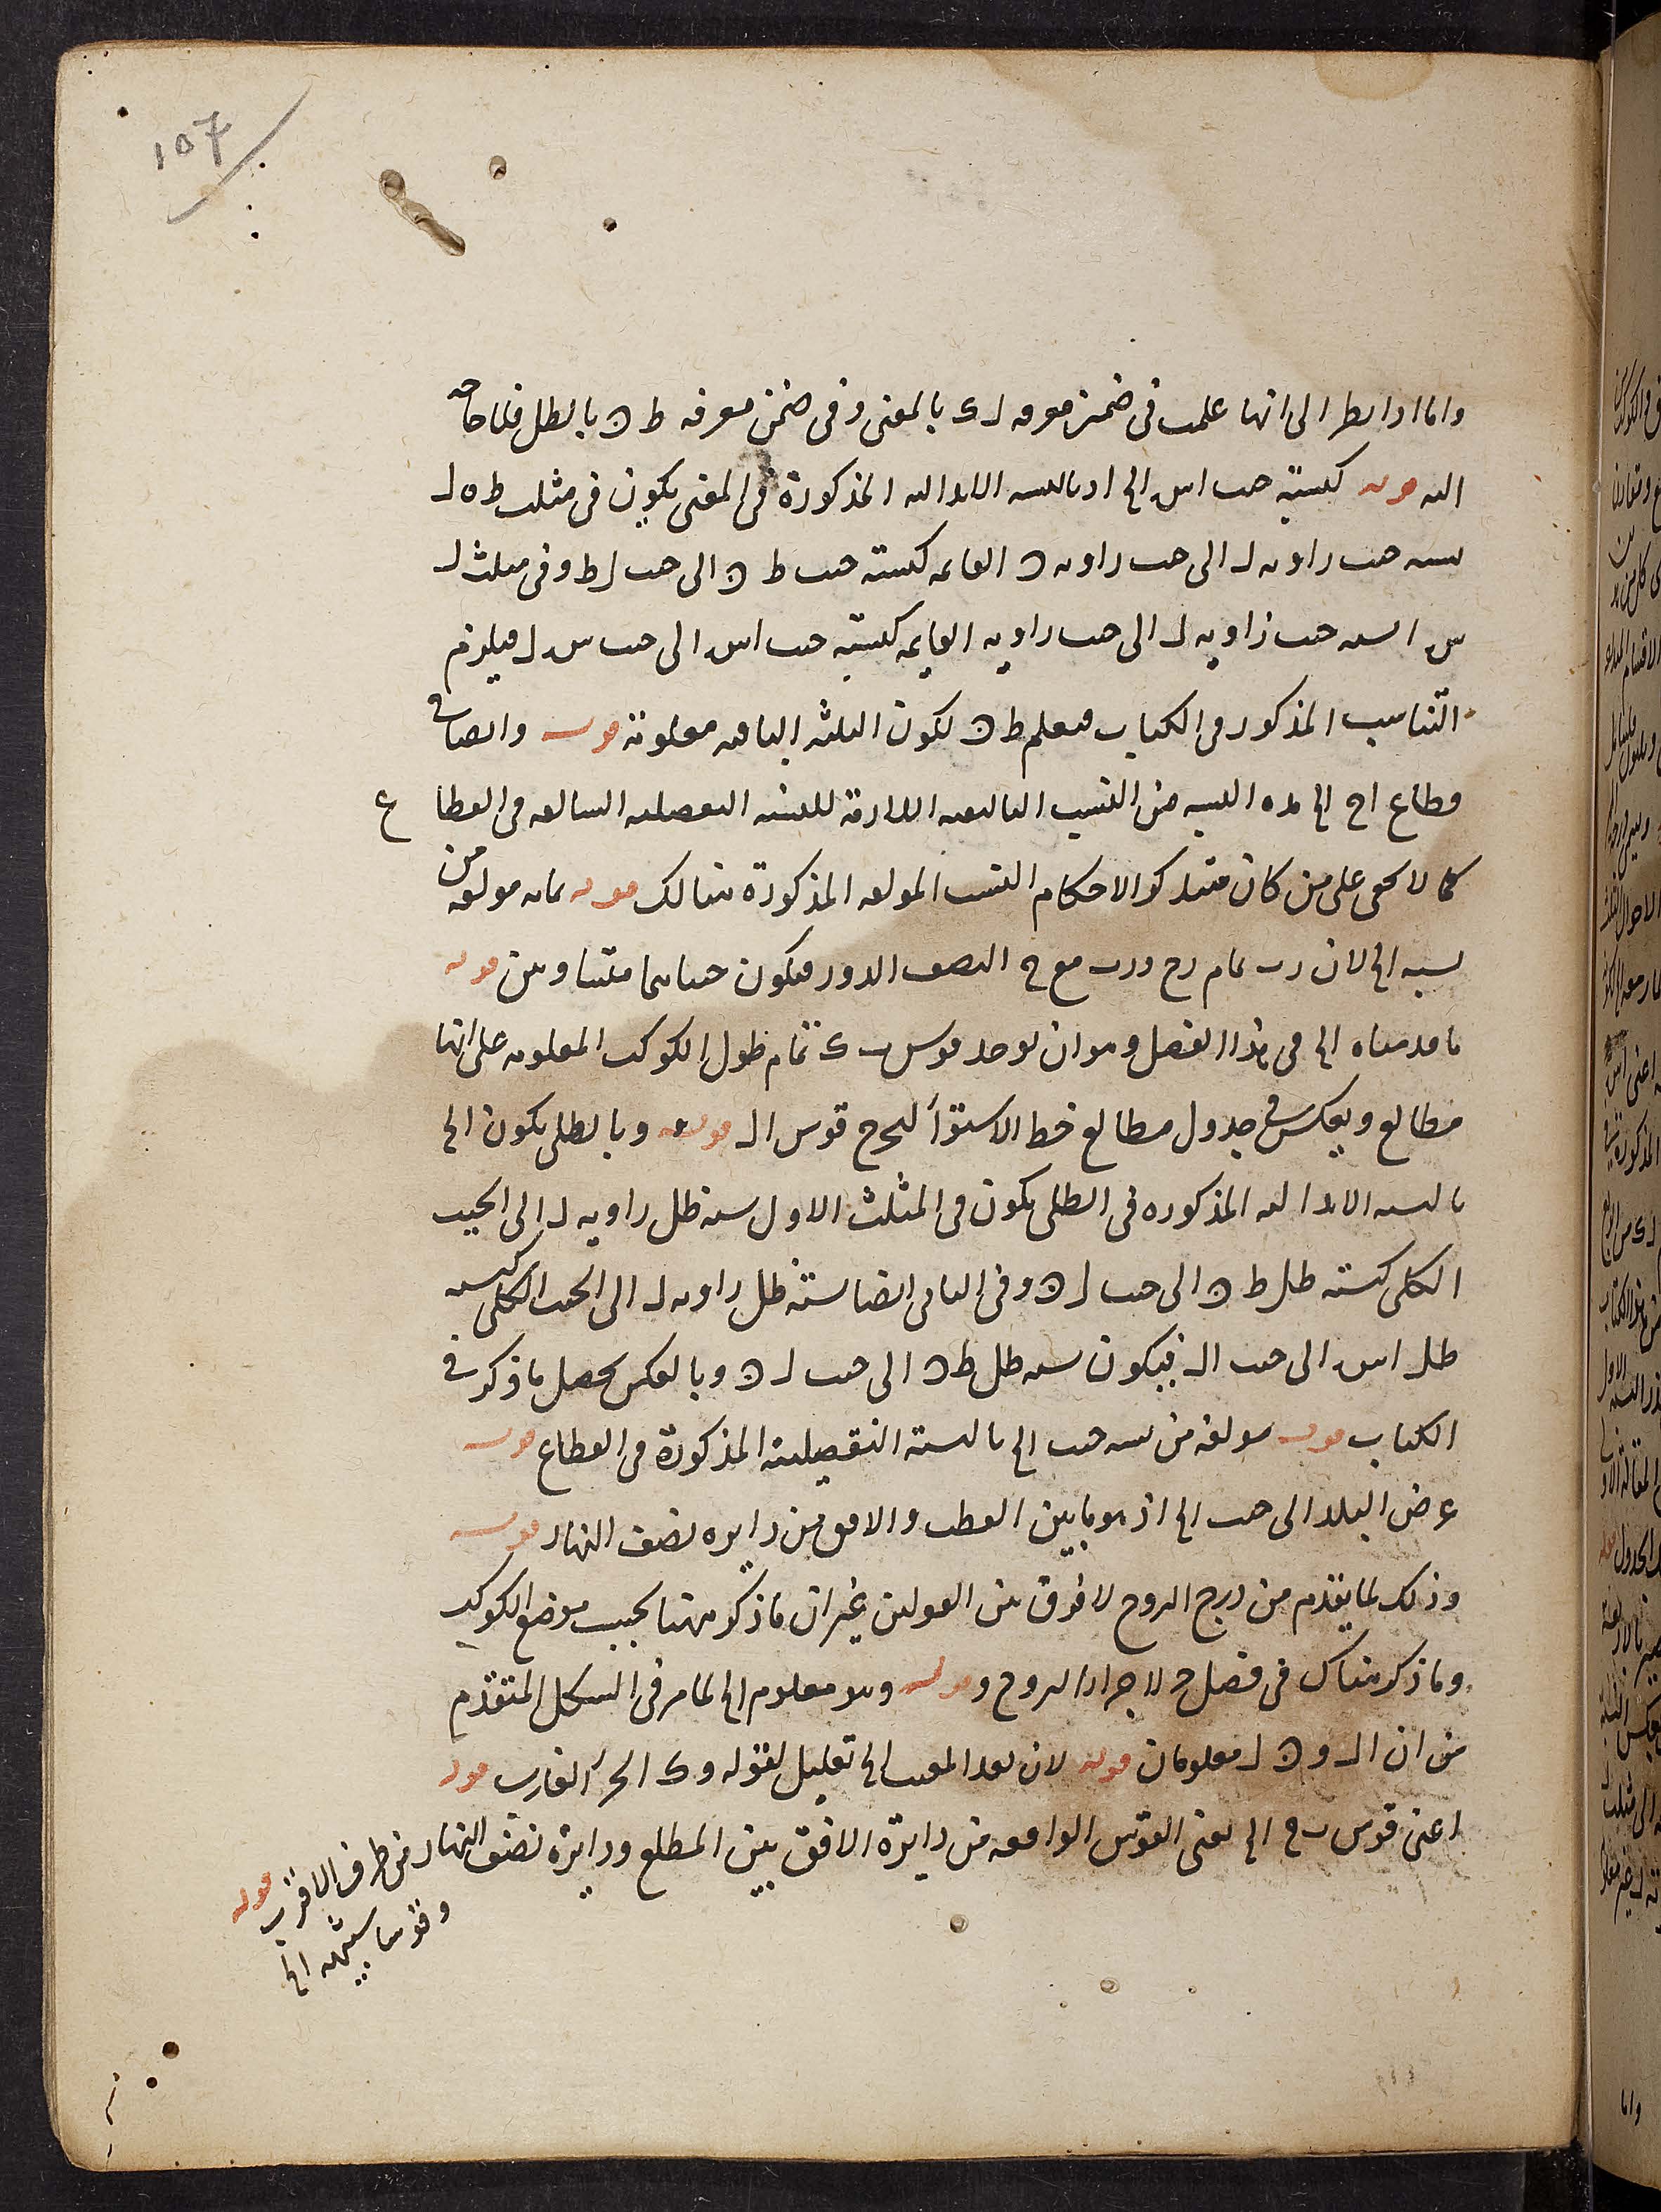 107
واما اذا نظر الى انها علمت فى ضمن معرفه ل ى بالمغنى وفى ضمن معرفه ط ن بالظل فلا حاجه
اليه قوله كنسبة جيب اس الى ا د بالنسبه الابداليه المذكورة فى المغنى يكون فى مثلث ط ه ل
نسبه جيب زاويه ل الى جيب زاويه ن القايمه كنسبته جيب ط ن الى جيب ل ط وفى مثلث ل
س ا نسبه جيب زاويه ل الى جيب زاويه القايمه كنسبة جيب اس الى جيب س ل فيلزم
التناسب المذكور فى الكتاب فيعلم ط ن لكون الثلثه الباقيه معلومة قوله وايضا فى
قطاع اح الى هذه النسبه من النسب التاليفيه اللازمة للنسبه التفصيليه السالفه فى القطاع
كما لا يخفى على من كان متذكر الاحكام النسب المولفه المذكورة هنالك قوله فانه مولفه من
نسبه الى لان ر ب تمام ر ح و د ب مع ح النصف الدور فيكون جيباهما متساويين قوله
ما قدمناه الى فى هذا الفصل وهو ان يوجد قوس ب ى تمام طول الكوكب المعلومه على انها
مطالع ويعكس فى جدول مطالع خط الاستوآ ليخرج قوس ال قوله وبالظلى يكون الى
بالنسبه الابداليه المذكوره فى الظلى يكون فى المثلث الاول نسبه ظل زاويه ل الى الجيب
الكلى كنسبته ظل ط ن الى جيب ل ن وفى الثانى ايضا نسبته ظل زاويه ل الى الجيب الكلى كنسبه
ظل اس الى جيب ال فيكون نسبه ظل ط ن الى جيب ل ن وبالعكس يحصل ما ذكر فى
الكتاب قوله مولفه من نسبه جيب الى بالنسبة التفصيليه المذكورة فى القطاع قوله
عرض البلد الى جيب الى اذ هو ما بين القطب والافق من دايره نصف النهار قوله
وذلك لما يقدم من درج البروج لا فرق بين القولين غير ان ما ذكر ههنا بحسب موضع الكوكب
وما ذكر هناك فى فصل ح لاجزاء البروج و قوله وهو معلوم الى لما مر فى الشكل المتقدم
من ان ال و ن ل معلومان قوله لان بعد المغيب الى تعليل لقوله و ى الجزء الغارب قوله
اعنى قوس ب ح الى يعنى القوس الواقعه من دايرة الافق بين المطلع ودايرة نصف النهار من طرف الاقرب قوله
وقوسا